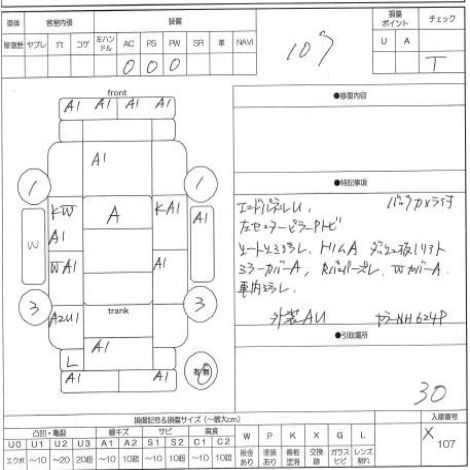 車体 客室内張 装備 損傷ポイント チェック
修復歴 ヤブレ 穴 コゲ 左ハンドル AC PS PW SR 革 NAVI U A
O O O T
107
front
A1 A1 A1 A1
A1
1 1
KW A KA1 A1
W A1
WA1 A1
3 3
AZU1 trank
A1
L
A1 A1
●修復内容
●特記事項
エンドパネルU、 バックカメラ付
左センターピラーPトビ
シートスミヨゴレ、トリムA ダッシュ板リフト
ミラーカバーA、
車内ヨゴレ
外装AU カラーNH624P
●引取場所
30
損傷記号&損傷サイズ(~最大cm) 入庫番号
凸凹・亀裂 線キズ サビ 腐食 W P K X G L X
U0 U1 U2 U3 A1 A2 S1 S2 C1 C2 107
エクボ ~10 ~20 20超 ~10 10超 ~10 10超 ~10 10超 板金あり 塗装あり 看板塗消 交換跡 ガラスヒビ レンズ割れ